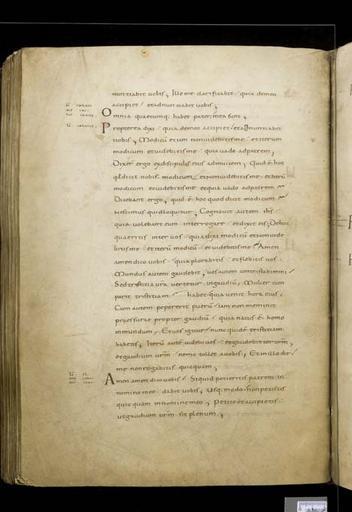 nuntiabit uobis, Ille me clarificabit quia de meo
accipiet et adnuntiabit uobis,
Omnia quaecumq; habet pater mea sunt,
Propterea dixi quia de meo accipiet et adnuntiabit
uobis, Modicu et iam non uidebitis me et iterum
modicum et uidebitis me quia uado ad patrem,
Dixer ergo ex discipulis eius ad inuicem, Quid e hoc
qd dicit nobis modicum et non uidebitis me et iteru
modicum et uidebitis me et quia uado ad patrem
Dicebant ergo, quid e hoc quod dicit modicum
nescimus quid loquitur, Cognouit autem ihs
quia uolebant eum interrogare et dixit eis, De hoc
quaeritis inter uos quia dixi modicu et non uide
bitis me et iteru modicu et uidebitis me Amen
amen dico uobis quia plorabitis et flebitis uos
Mundus autem gaudebit, uos autem contristabimini,
Sed tristitia ura uertetur in gaudiu, Mulier cum
parit tristitiam habet quia uenit hora eius,
Cum autem pepererit pueru iam non meminit
pressurae propter gaudiu quia natus e homo
in mundum, Et uos igitur nunc quide tristitiam
habetis, Iteru aute uidebo uos et gaudebit cor urm,
et gaudium urm nemo tollet a uobis, Et in illo die
me non rogabitis quicquam,
Amen amen dico uobis Si quid petieritis patrem in
nomine meo dabit uobis, Usq; modo non petistis
quicquam in nomine meo, Petite et accipietis
ut gaudium urm sit plenum,